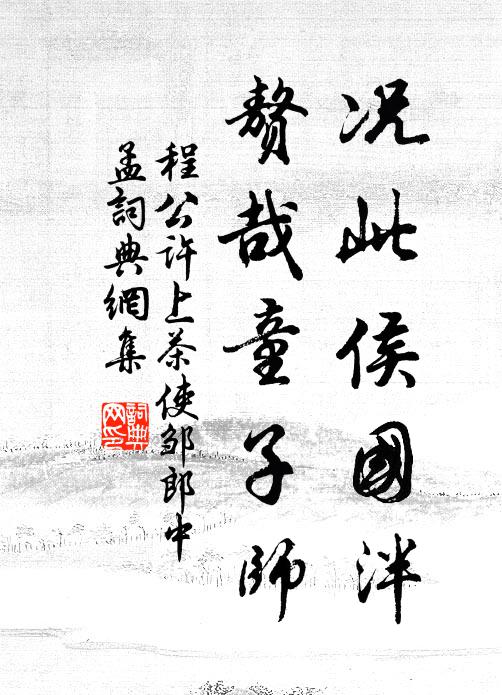 况此侯國泮
贅哉童子師
程公許上茶使邹郎中
孟詞典網集
詞典网印